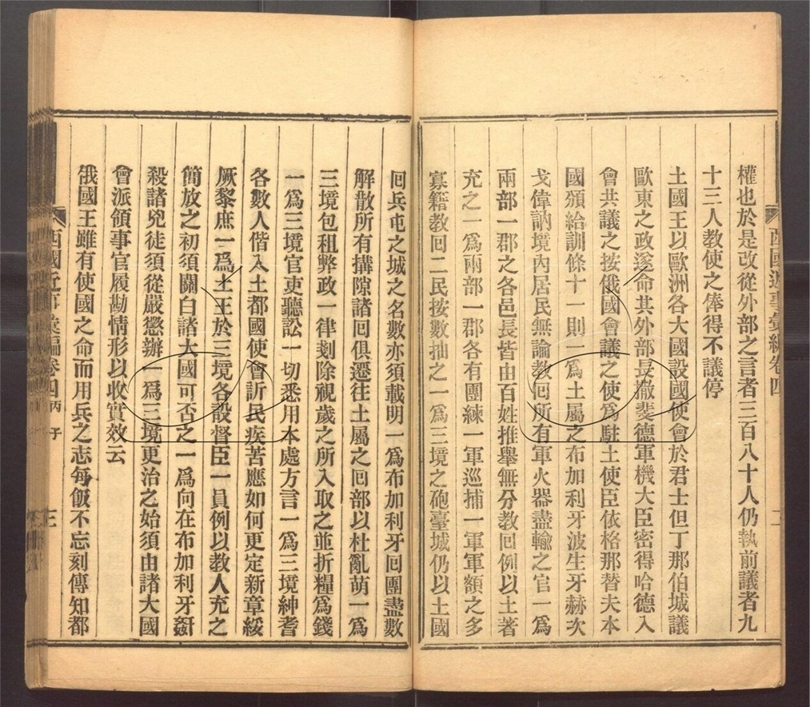 權也於是改從外部之言者三百八十人仍執前議者九
十三人教使之俸得不議停
土國王以歐洲各大國設國使會於君士但丁那伯城議
歐東之政遂命其外部長撒裴德軍機大臣密得哈德入
會共議之按俄國會議之使爲駐土使臣依格那替夫本
國頒給訓條十一則一爲土屬之布加利牙波生牙赫次
戈偉訥境內居民無論教回所有軍火器盡輸之官一爲
兩部一郡之各邑長皆由百姓推舉無分教回例以土著
充之一爲兩部一郡各有團練一軍巡捕一軍軍額之多
寡籍教回二民按數抽之一爲三境之砲臺城仍以土國
回兵屯之城之名數亦須載明一爲布加利牙回團盡數
解散所有搆隙諸回俱遷往土屬之回部以杜亂萌一爲
三境包租弊政一律剗除視歲之所入取之並折糧爲錢
一爲三境官吏聽訟一切悉用本處方言一爲三境紳耆
各數人偕入土都國使會訢民疾苦應如何更定新章綏
厥黎庶一爲土王於三境各設督臣一員例以教人充之
簡放之初須關白諸大國可否之一爲向在布加利牙
殺諸兇徒須從嚴懲辦一爲三境更治之始須由諸大國
會派領事官履勘情形以收實效云
俄國王雖有使國之命而用兵之志每飯不忘刻傳知都
西國近事彙編卷四 丙子